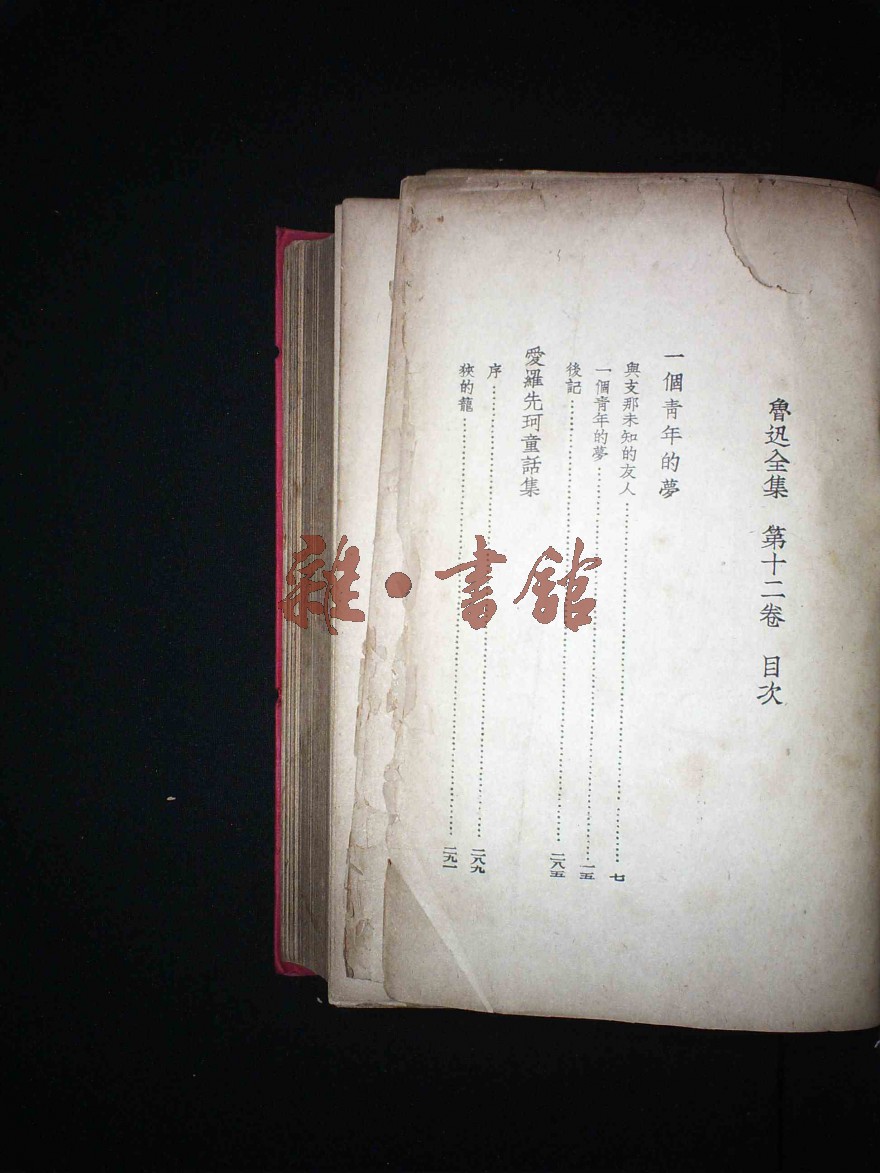 魯迅全集 第十二卷 目次
一個青年的夢
與支那未知的友人……七
一個青年的夢……一五
後記……二八五
愛羅先珂童話集
序……二八九
狹的籠……二九一
雜·書館